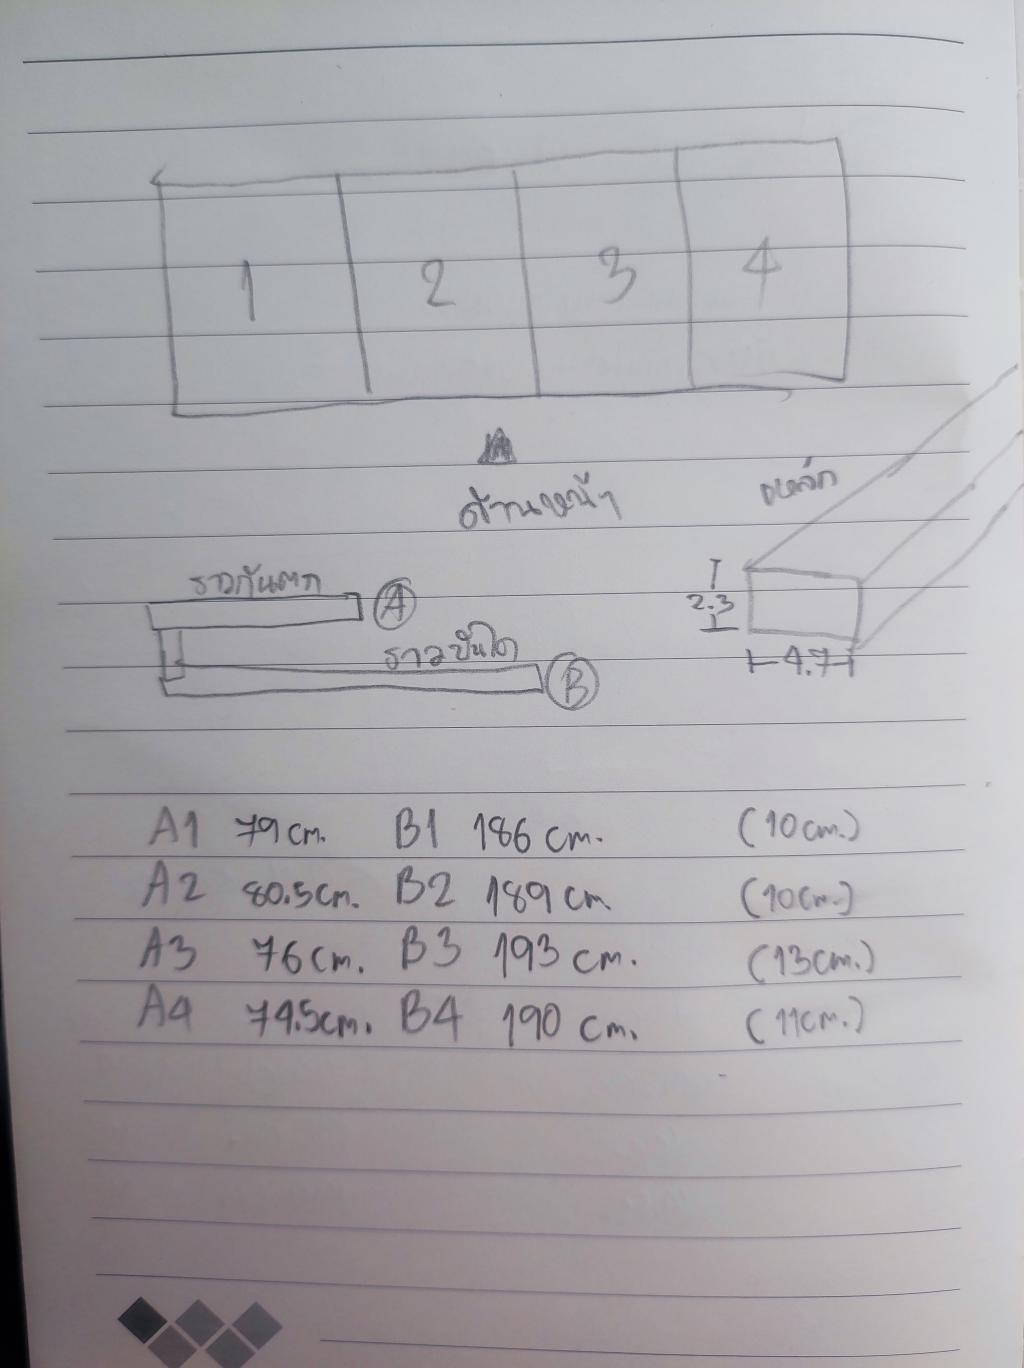 1 2 3 4
ด้านหน้า
เหล็ก
ราวกันตก
A
2.3
ราวบันได
B
4.7
A1 79 cm. B1 186 cm. (10 cm.)
A2 80.5 cm. B2 189 cm (10 cm.)
A3 76 cm. B3 193 cm. (13 cm.)
A4 74.5 cm. B4 190 cm. (11 cm.)